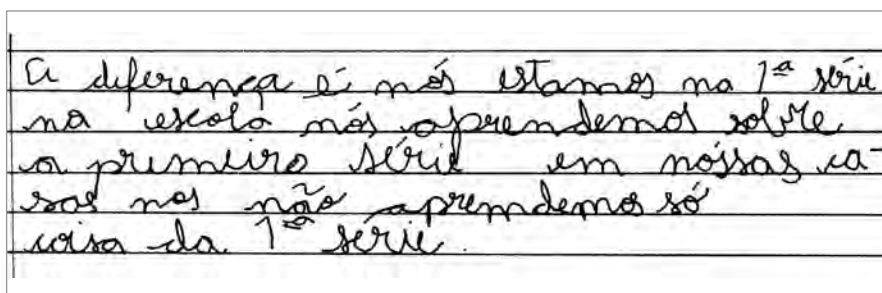 A diferença é nós estamos na 1ª série
na escola nós aprendemos sobre
a primeira série em nóssas ca-
sas nos não apremdemos só
coisa da 1ª serie.